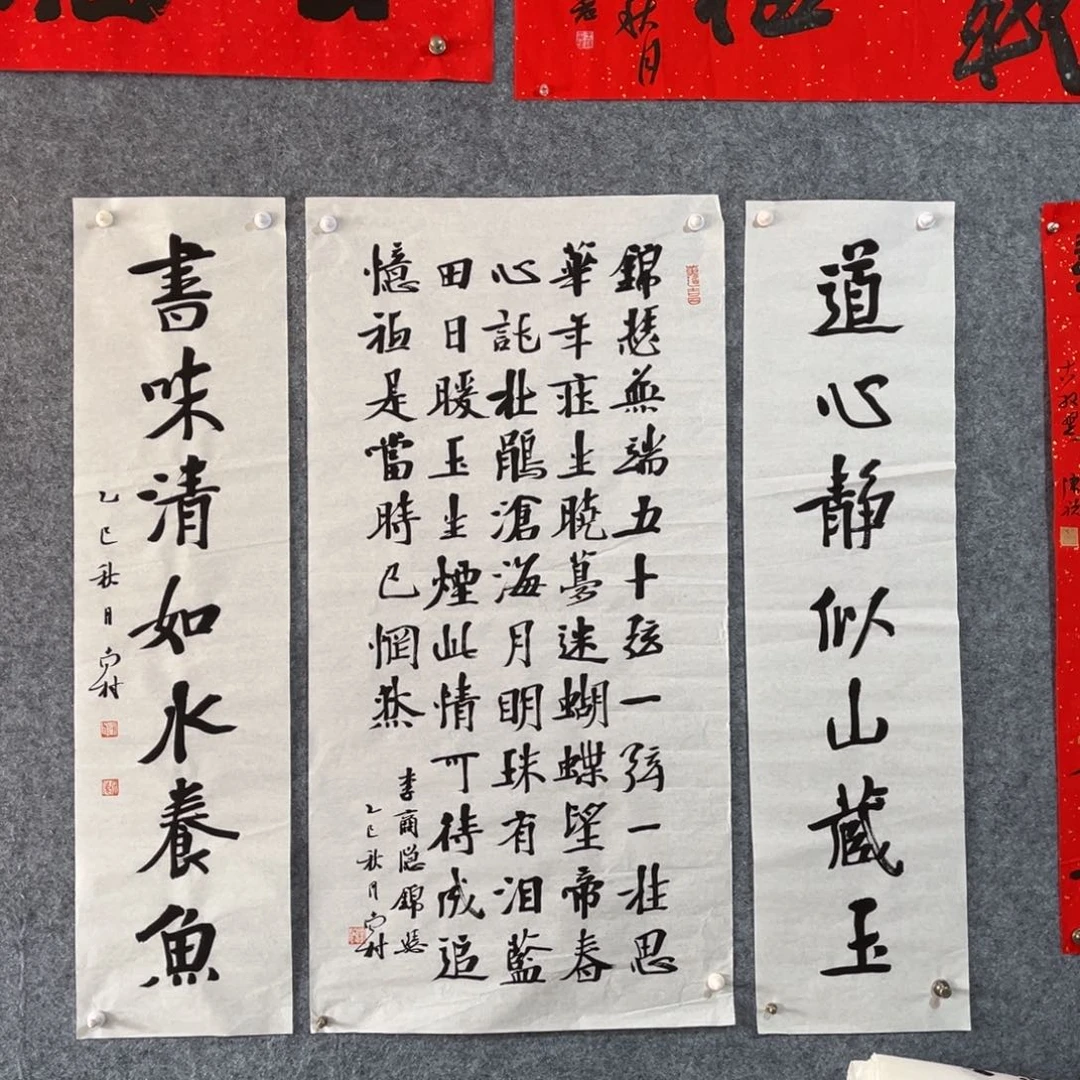 秋月
道心静似山藏玉
錦瑟無端五十弦一弦一柱思
華年莊生曉夢迷蝴蝶望帝春
心託杜鵑滄海月明珠有泪藍
田日暖玉生煙此情可待成追
憶祗是當時已惘然
李商隐錦瑟
乙巳秋月村
書味清如水養魚
乙巳秋月村